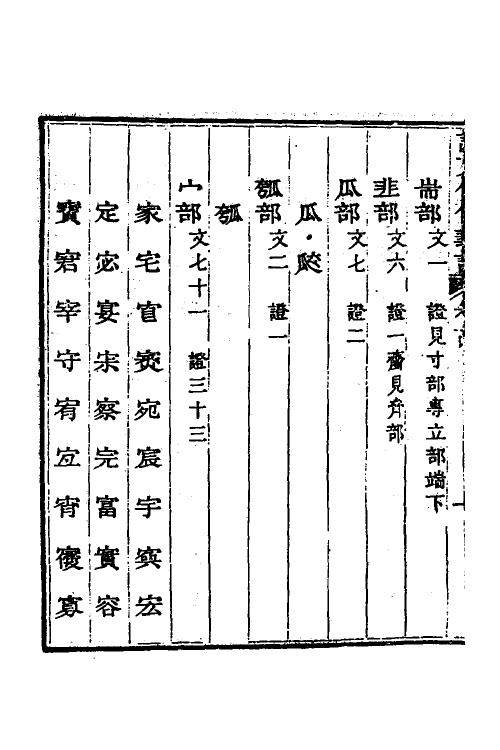 耑部文一　證見寸部專立部端下
韭部文六　證一齏見齊部
瓜部文七　證二
瓜・㼎
瓠部文二　證一
瓠
宀部文七十一　證三十三
家宅宣𡪢宛宸宇寏宏
定宓宴宋察完富實容
寶宭宰守宥宜宵寑寡